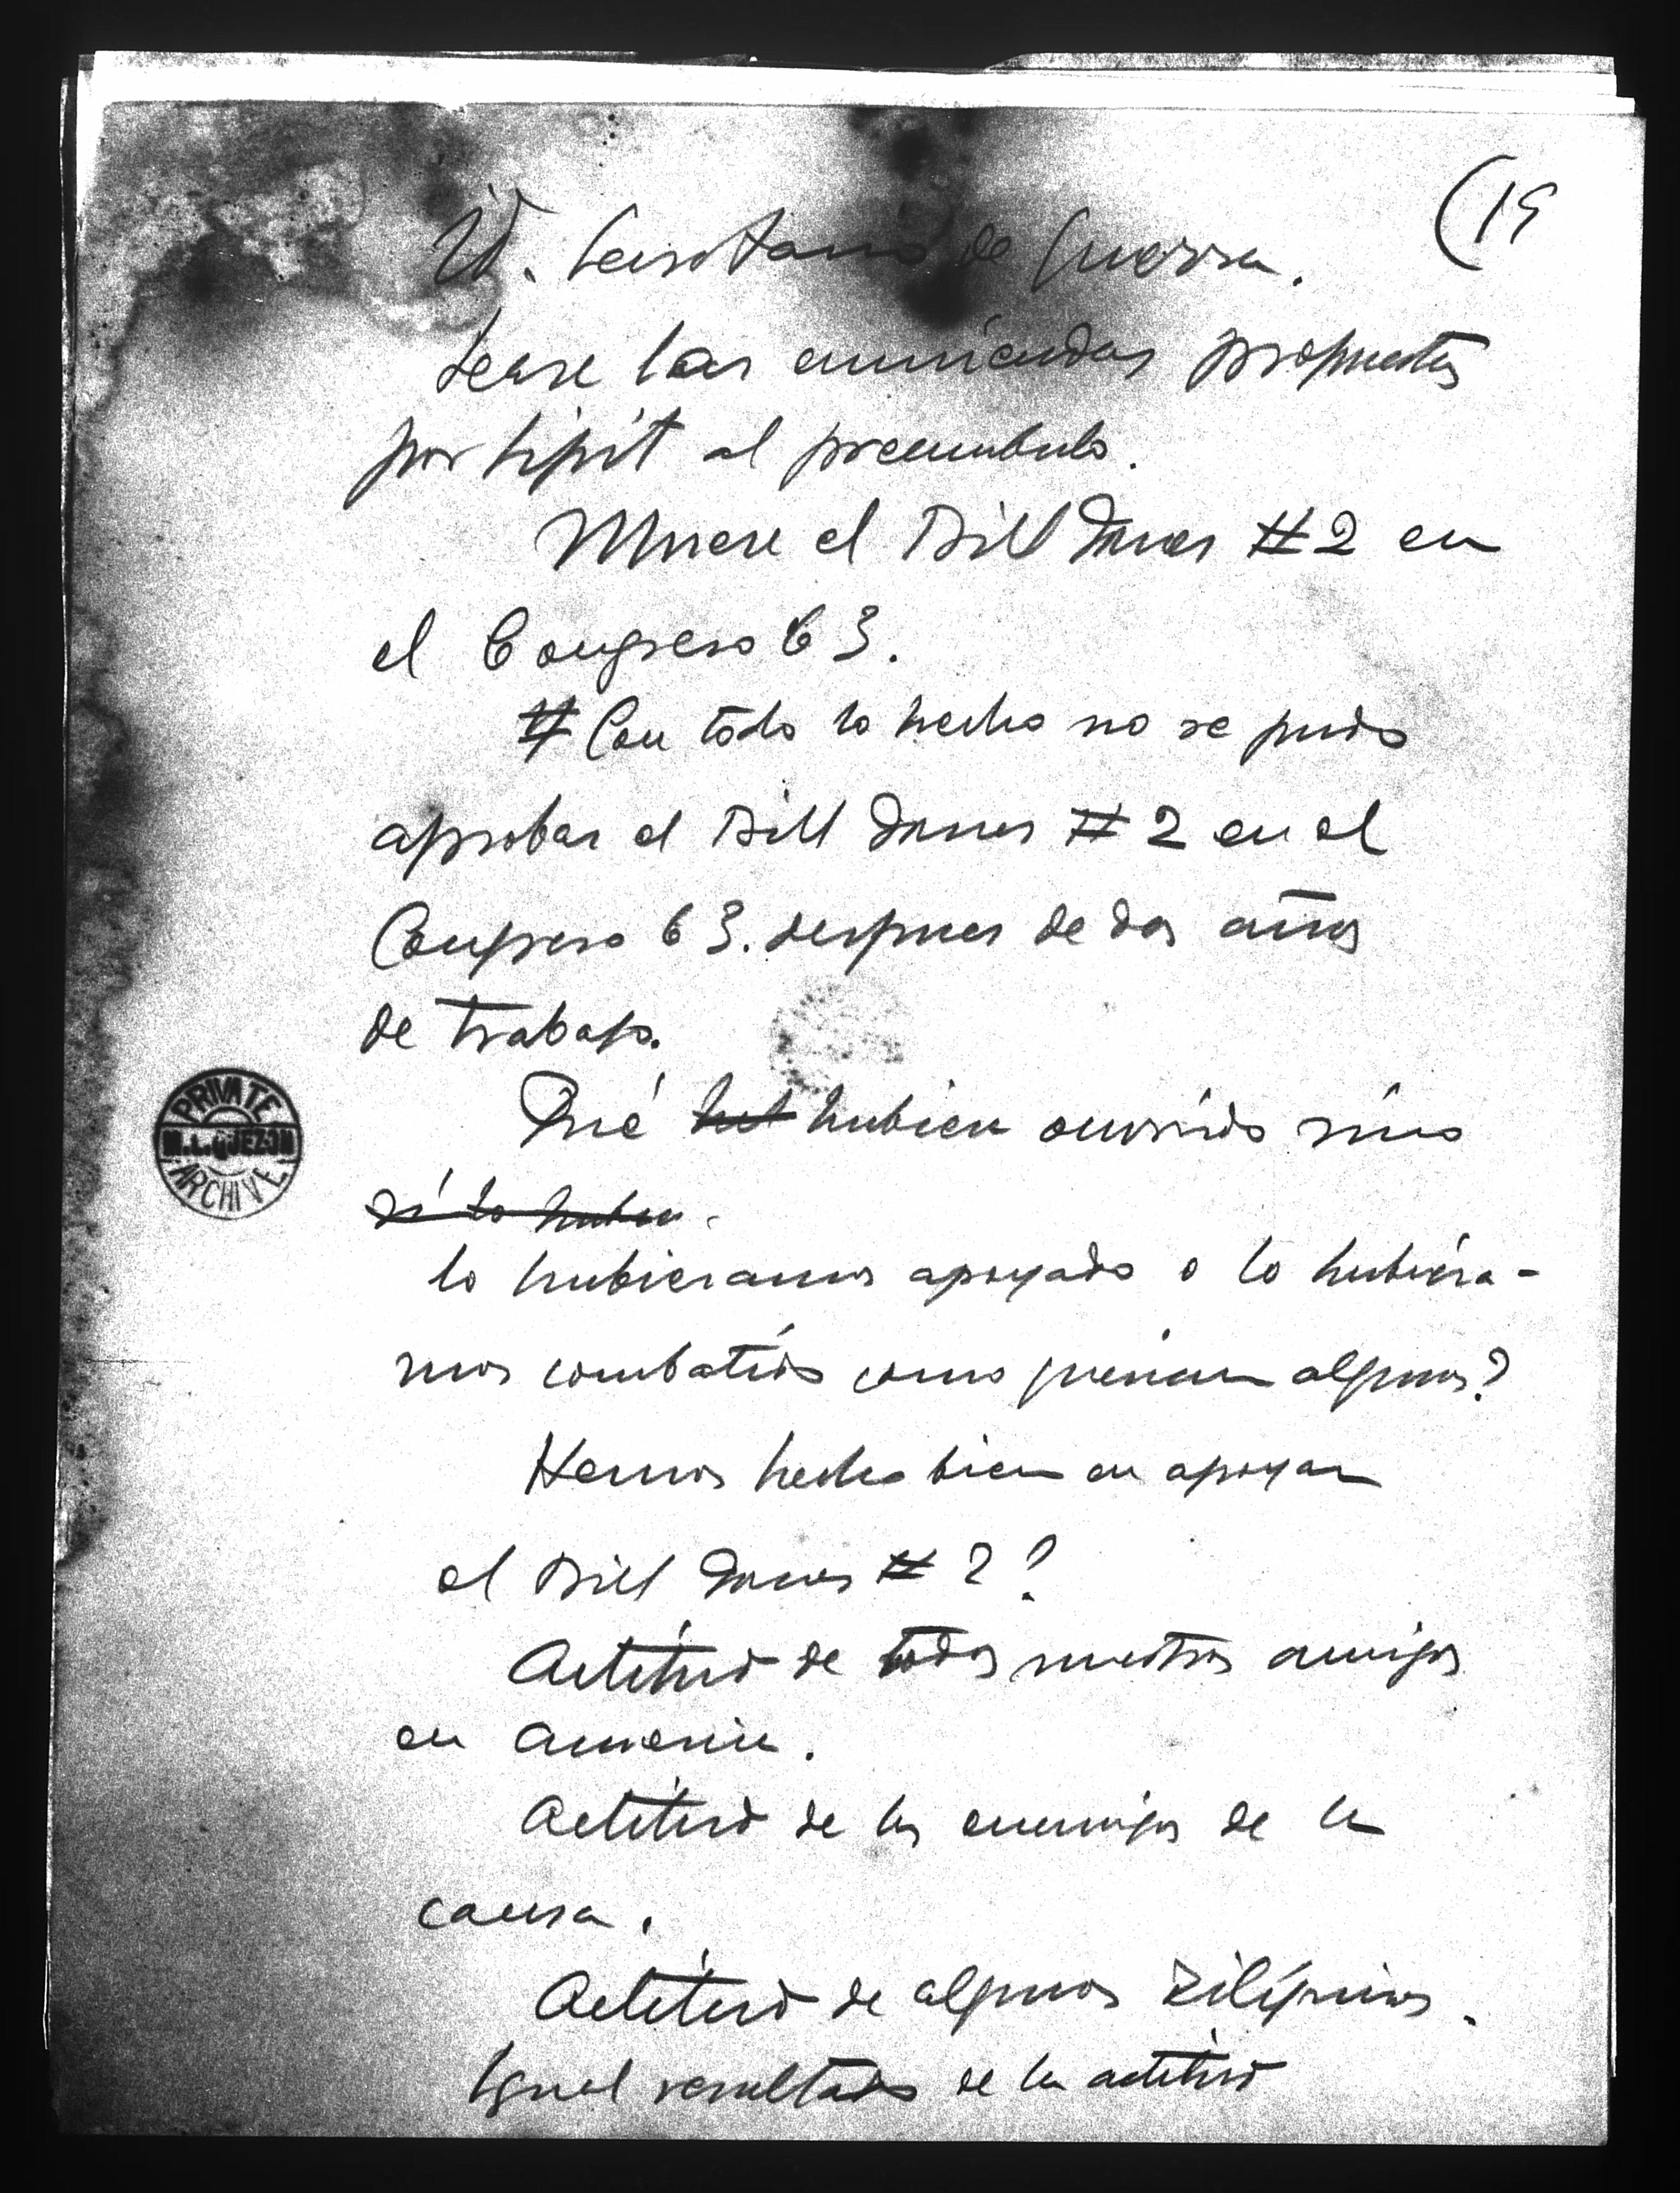 (19
Id. Secretario de Guerra.
Lease las enmiendas propuestas
por hipit al preambulo.
Muere el Bill Jones #2 en
el Congreso 63.
# Con todo lo hecho no se pudo
aprobar el Bill Jones #2 en el
Congreso 63. despues de dos años
de trabajo.
Qué hubiera ocurrido sino
si lo hubier
lo hubieramos apoyado o lo hubiéra-
mos combatido como querian algunos?
Hemos hecho bien en apoyar
el Bill Jones #2?
Actitud de todos nuestros amigos
en America.
Actitud de los enemigos de la
causa.
Actitud de algunos Filipinos.
Igual resultado de la actitud
PRIVATE
M.L.QUEZON
ARCHIVE